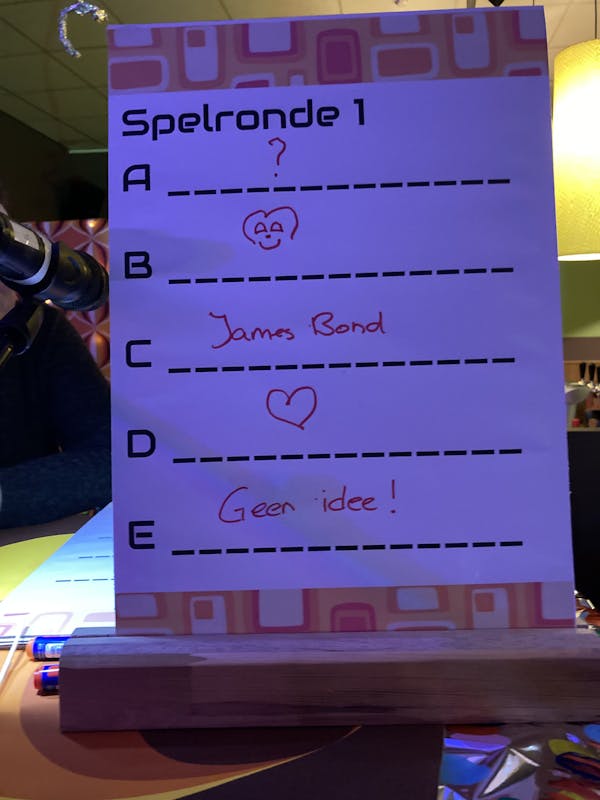 Spelronde 1
A ?
B
C James Bond
D
E Geen idee!